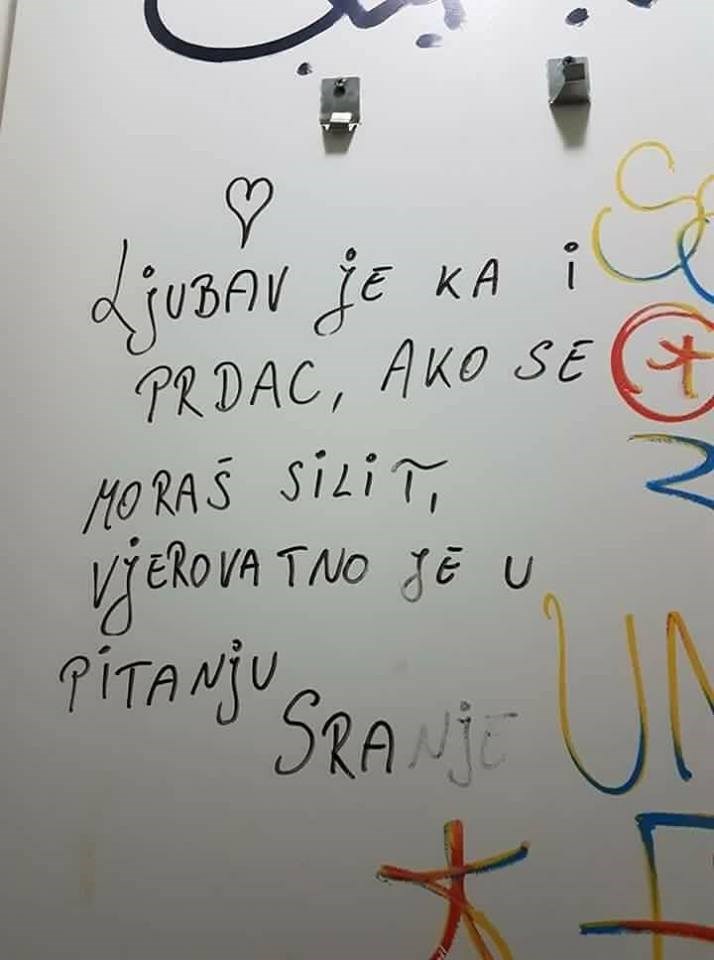 LjUBAV jE KA i
PRDAC, AKO SE
MORAŠ SiLiT,
VjEROVATNO jE U
PiTANjU
SRANjE